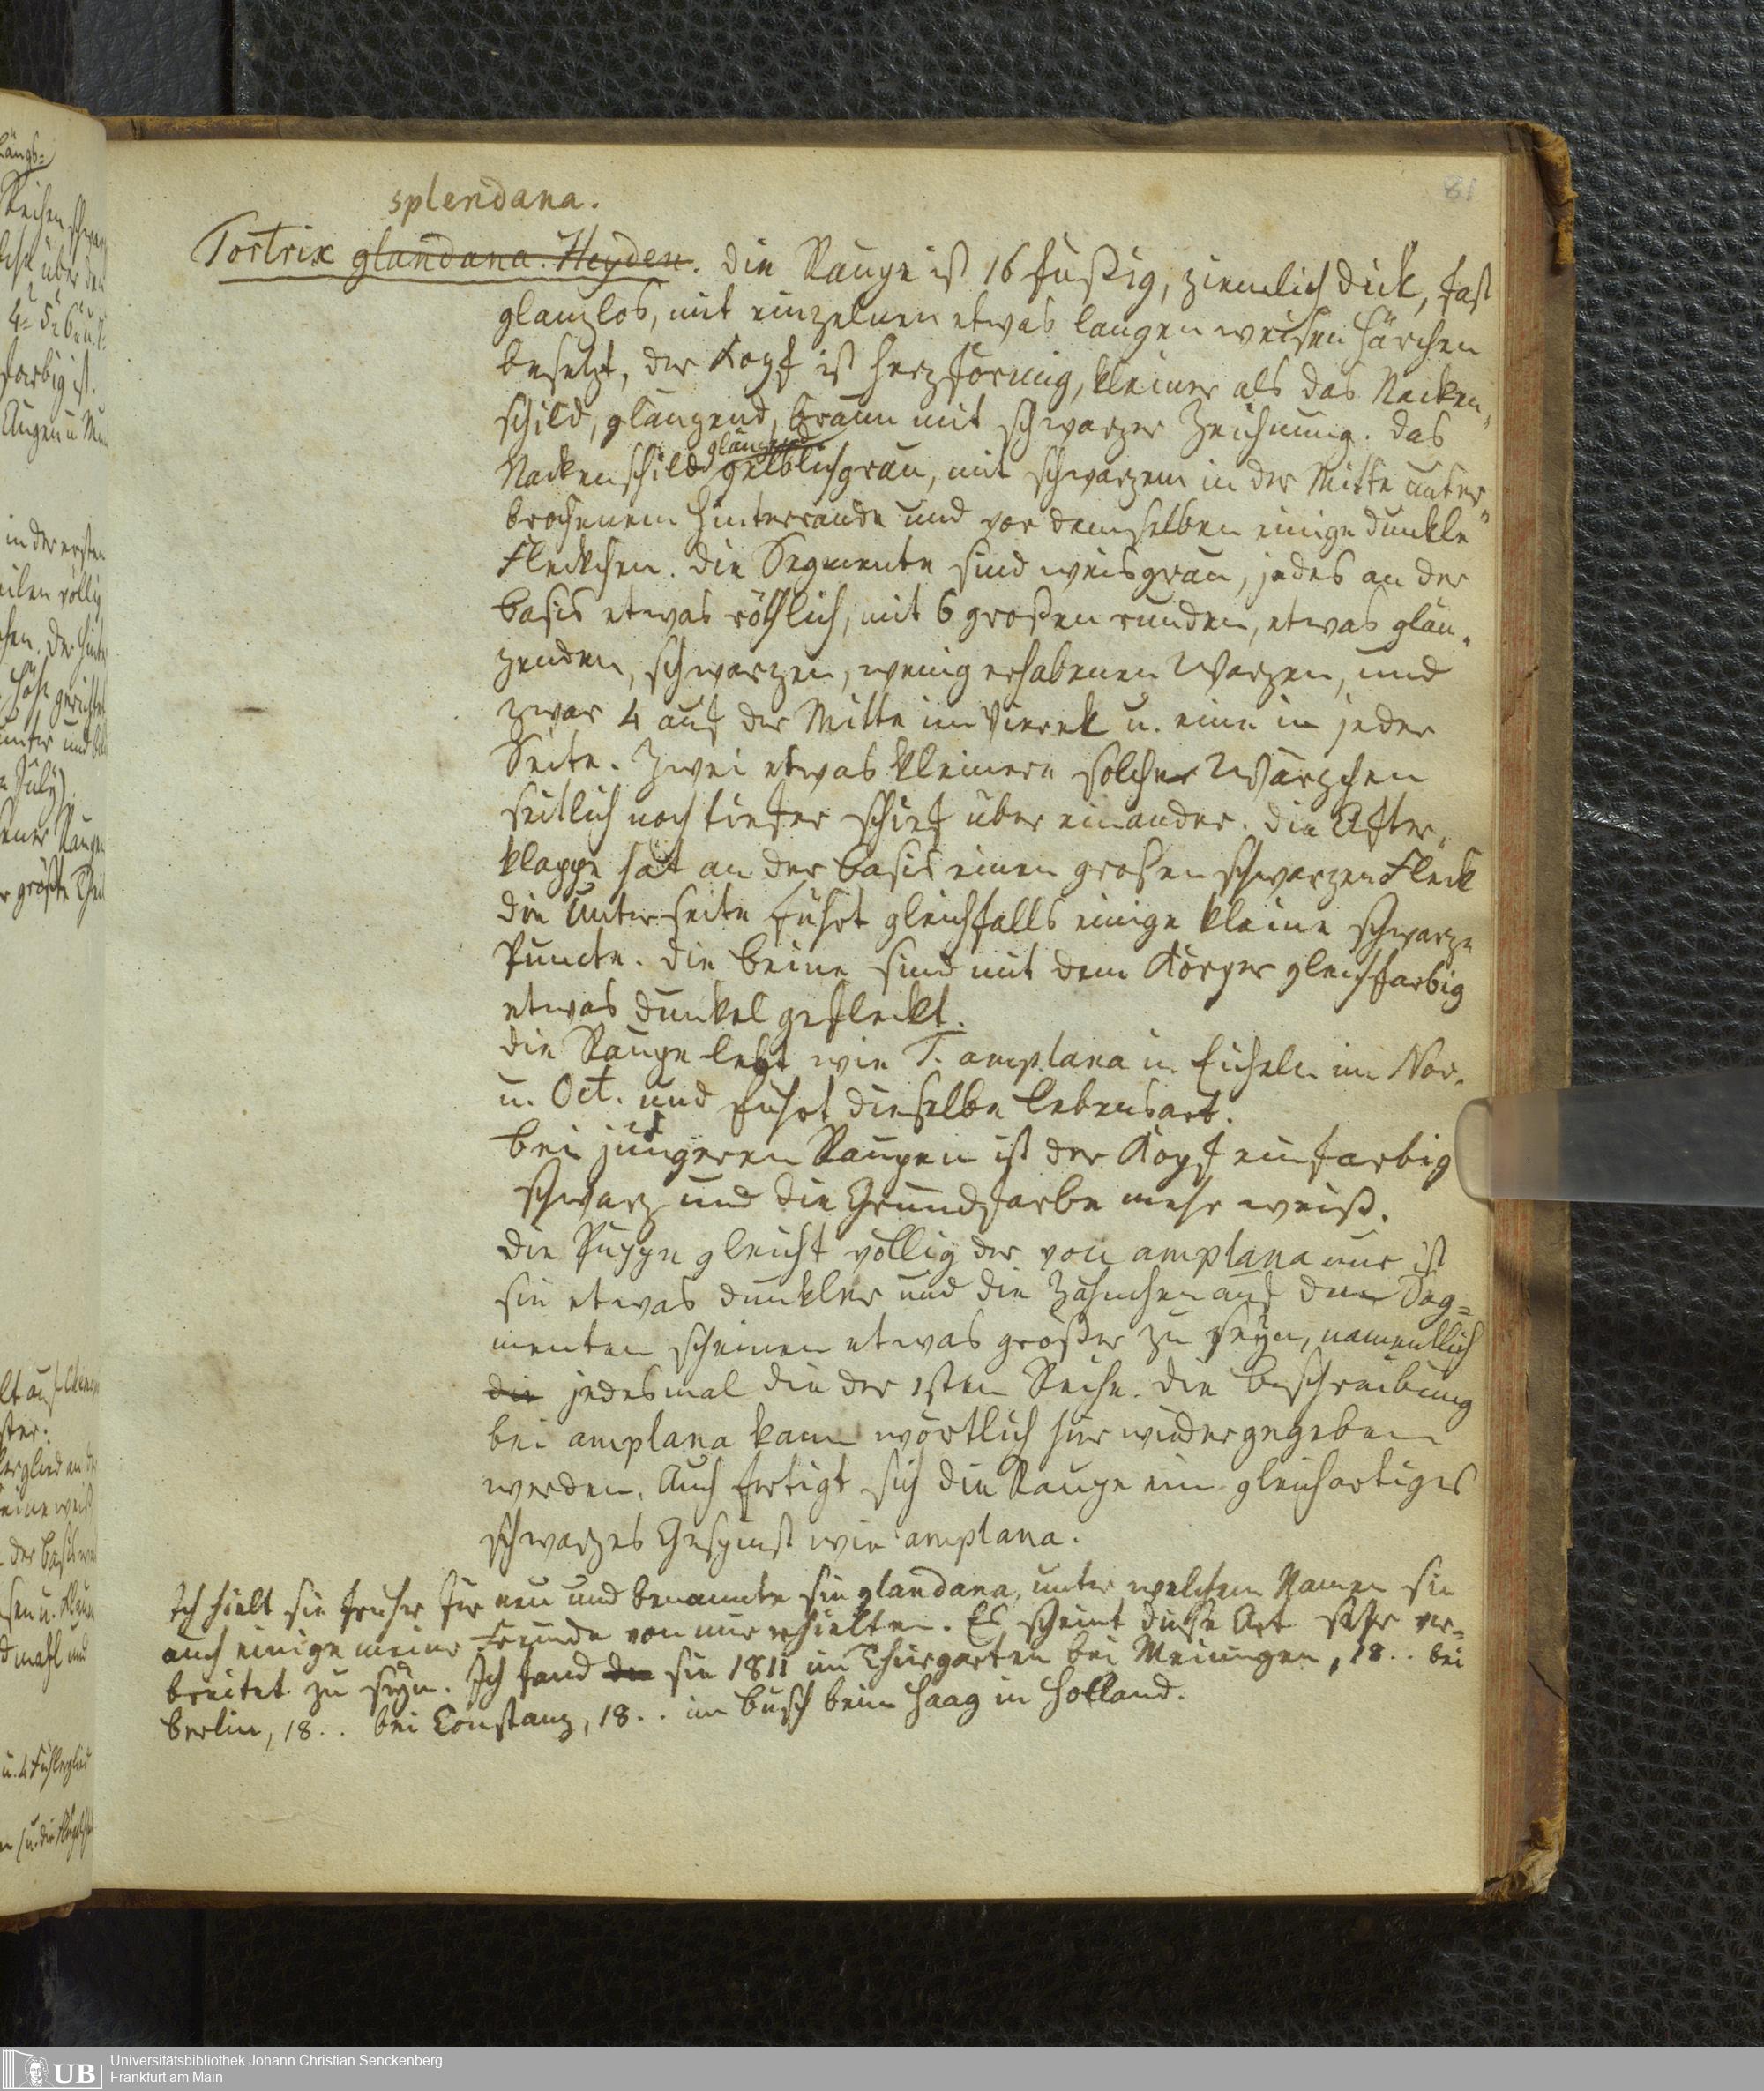 81
splendana.
Tortrix glandana. Heyden. die Raupe ist 16 fußig, ziemlich dick, fast
glanzlos, mit einzelnen etwas langen weisen Härchen
besetzt, der Kopf ist herzförmig, kleiner als das Nacken"
schild, glänzend, braun mit schwarzer Zeichnung. das
glänzend
Nackenschild gelblichgrau, mit schwarzem in der Mitte unter"
brochenem Hinterrande und vor demselben einige dunkle"
Fleckchen. die Segmente sind weisgrau, jedes an der
basis etwas röthlich, mit 6 großen runden, etwas glän"
zenden, schwarzen, wenig erhabenen Warzen, und
zwar 4 auf der Mitte im Vierek u. eine in jeder
Seite. Zwei etwas kleinere solcher Wärzchen
seitlich noch tiefer schief über einander. die After"
klappe hat an der basis einen großen schwarzen Fleck
die Unterseite führt gleichfalls einige kleine schwarze
Puncte. die beine sind mit dem Körper gleichfarbig
etwas dunkel gefleckt.
die Raupe lebt wie T. amplana in Eicheln im Nov.
u. Oct. und führt dieselbe lebensart.
bei jüngeren Raupen ist der Kopf einfarbig
schwarz und die Grundfarbe mehr weiß.
die Puppe gleicht völlig der von amplana nur ist
sie etwas dunkler und die Zähnchen auf den Seg=
menten scheinen etwas größer zu seyn, namentlich
die jedesmal die der 1sten Reihe. die beschreibung
bei amplana kann wörtlich hier wiedergegeben
werden. Auch fertigt sich die Raupe ein gleichartiges
schwarzes Gespinst wie amplana.
Ich hielt sie früher für neu und benannte sie glandana, unter welchem Namen sie
auch einige meiner Freunde von mir erhielten. Es scheint diese Art sehr ver=
breitet zu seyn. Ich fand die sie 1811 im Thiergarten bei Meiningen, 18.. bei
berlin, 18.. bei Constanz, 18.. im busch beim Haag in Holland.
UB
Universitätsbibliothek Johann Christian Senckenberg
Frankfurt am Main